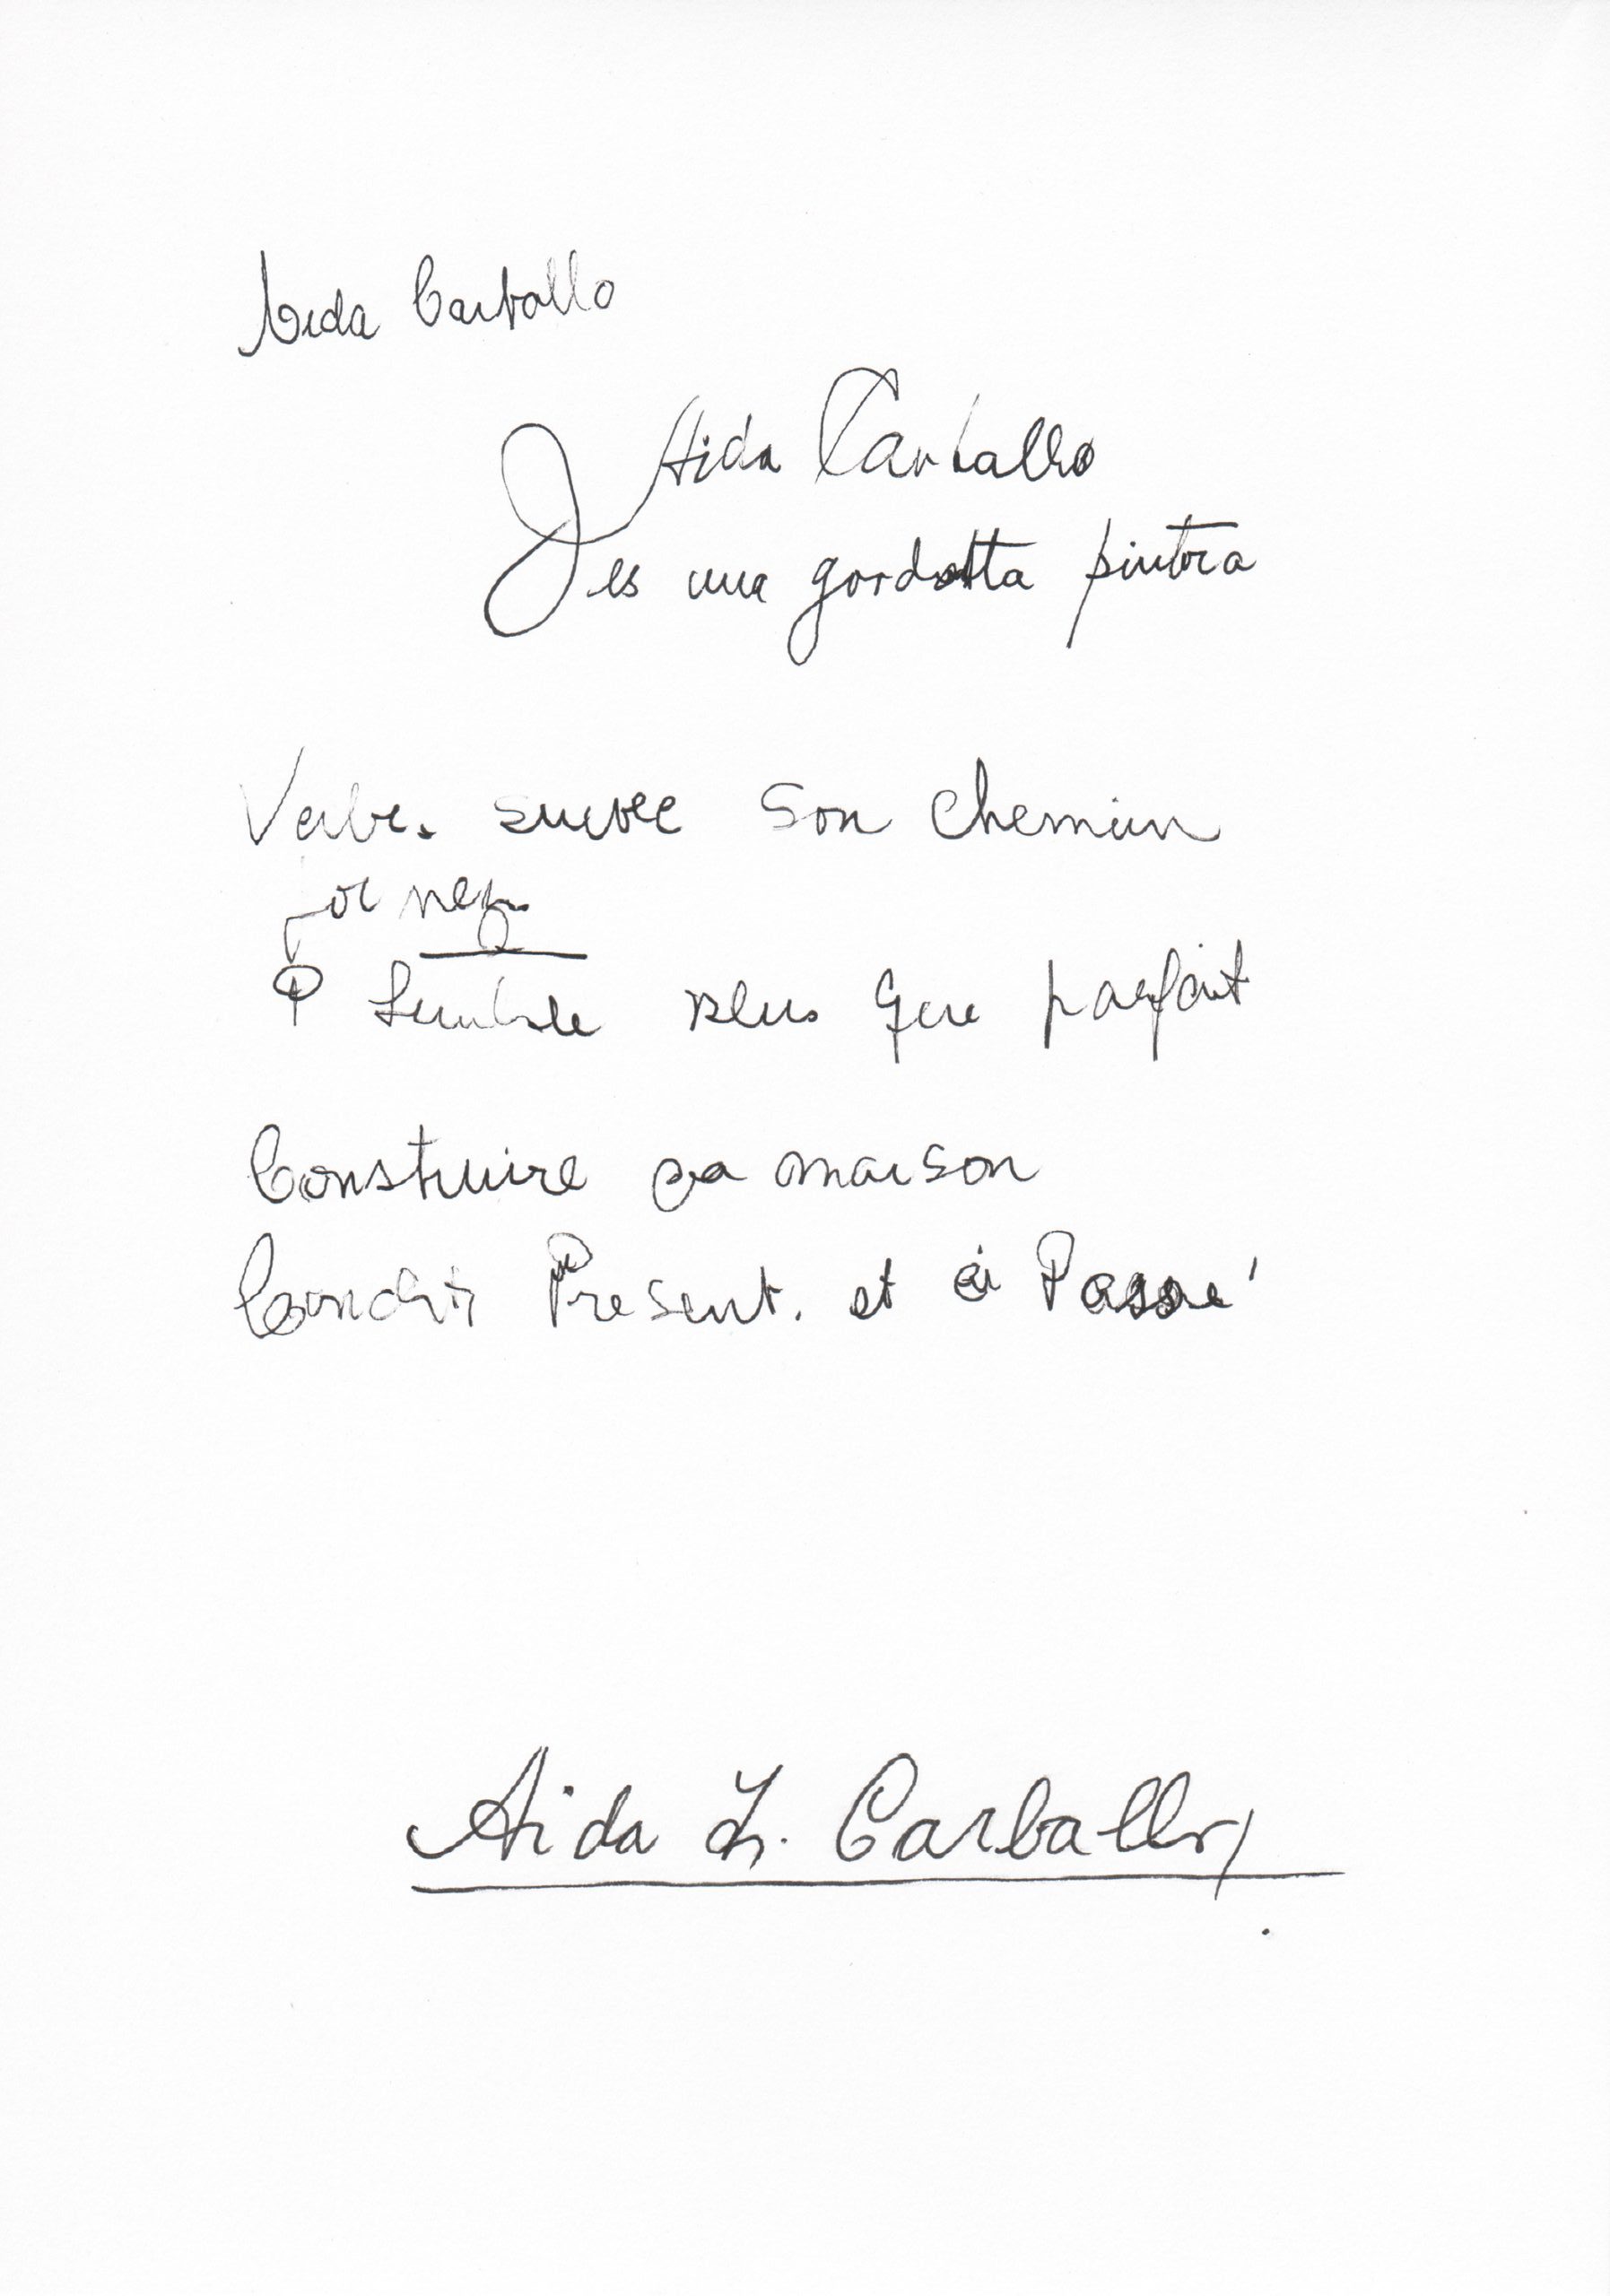 Aida Carballo
Aida Carballo
es una gordotta pintora
Verbe. suivre son chemin
neg.
plus que parfait
Construire sa maison
Condit Present. et à Passé
Aida L. Carballo